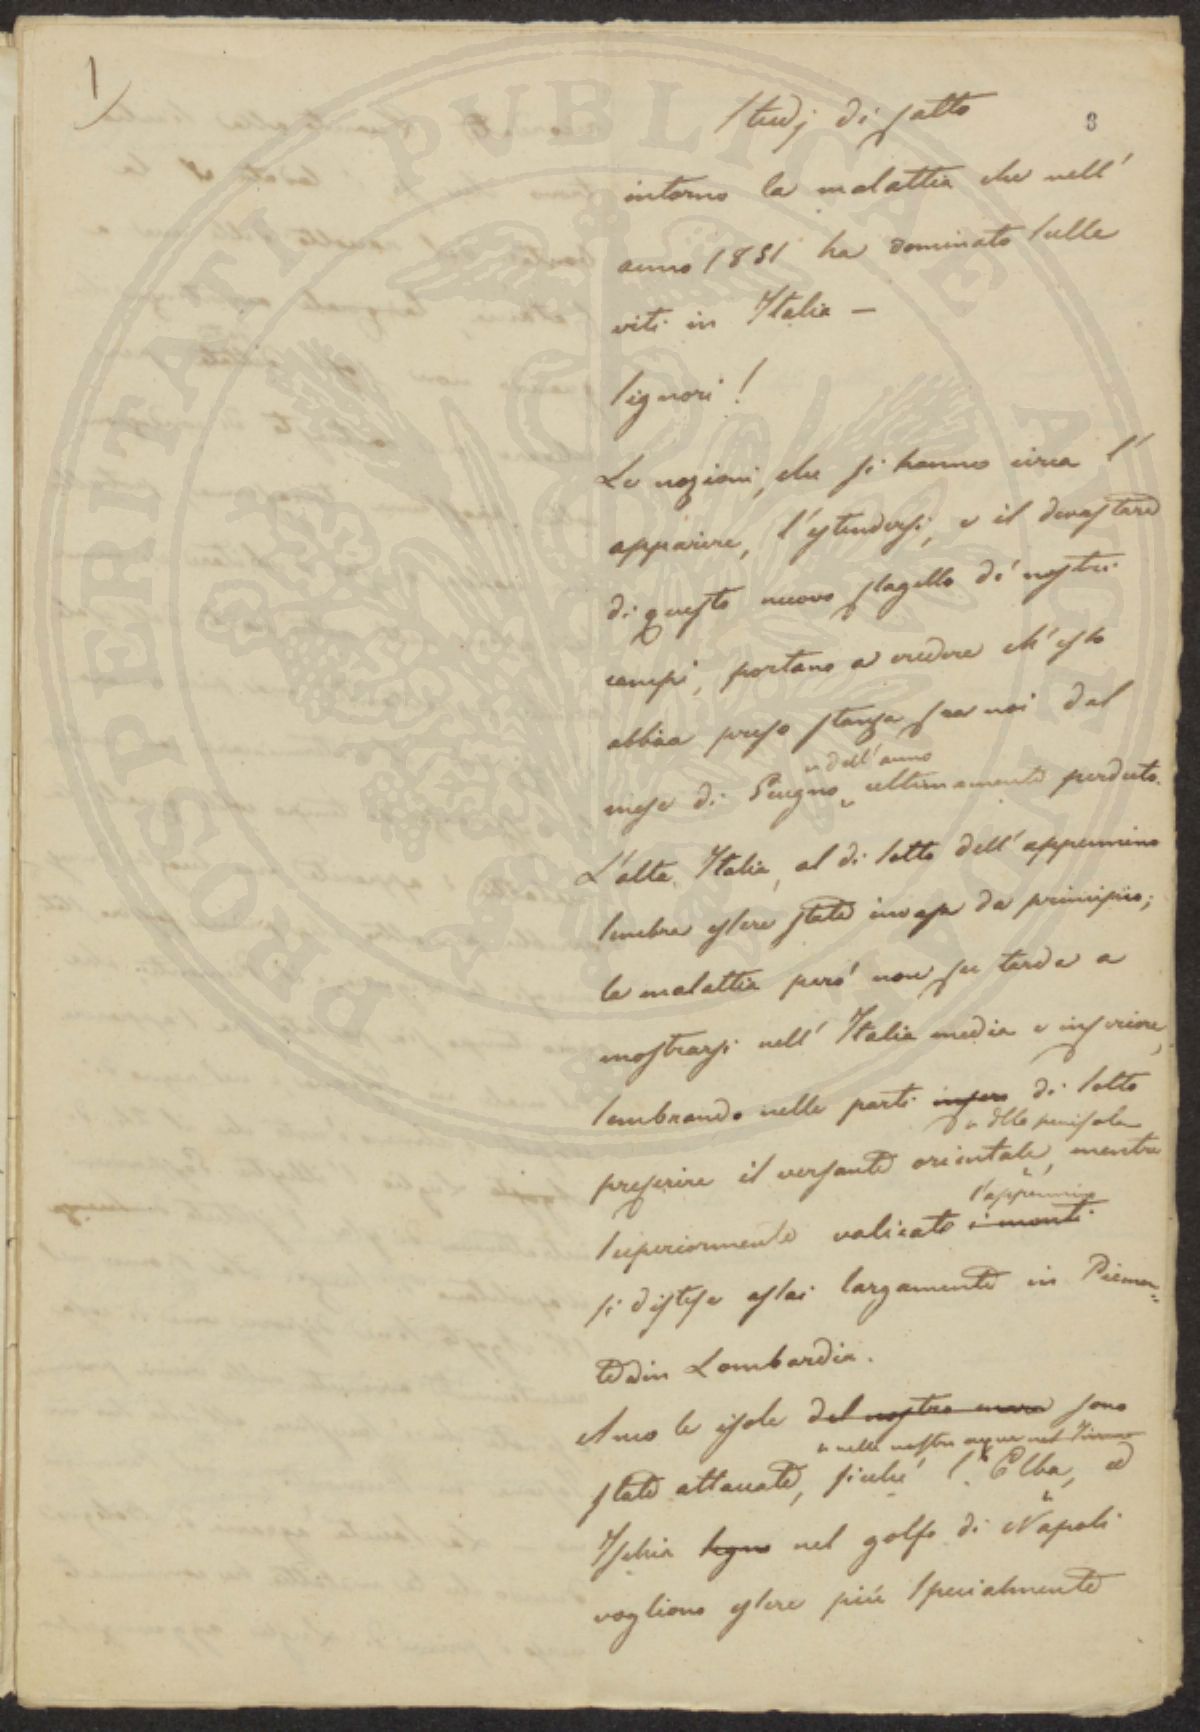 1
3
Studj di fatto
intorno la malattia che nell'
anno 1851 ha dominato sulle
viti in Italia —
Signori!
Le nozioni, che si hanno circa l'
apparire, l'estendersi, e il devastare
di questo nuovo flagello de' nostri
campi, portano a credere ch'esso
abbia preso stanza fra noi dal
" dell'anno
mese di Giugno " ultimamente perduto.
L'alta Italia, al di sotto dell'appennino
sembra essere stata invasa da principio;
la malattia però non fu tarda a
mostrarsi nell'Italia media e inferiore,
sembrando nelle parti infero di sotto
" della penisola
preferire il versante orientale, mentre
l'appennino
superiormente valicato i monti
si distese assai largamente in Piemon=
te ed in Lombardia.
Anco le isole del nostro mare sono
" nelle nostre acque nel Tirreno
state attaccate, sicché l'Elba, ed
Ischia segno nel golfo di Napoli
vogliono essere più specialmente
PROSPERITATI PVBLICAE AVGENDAE